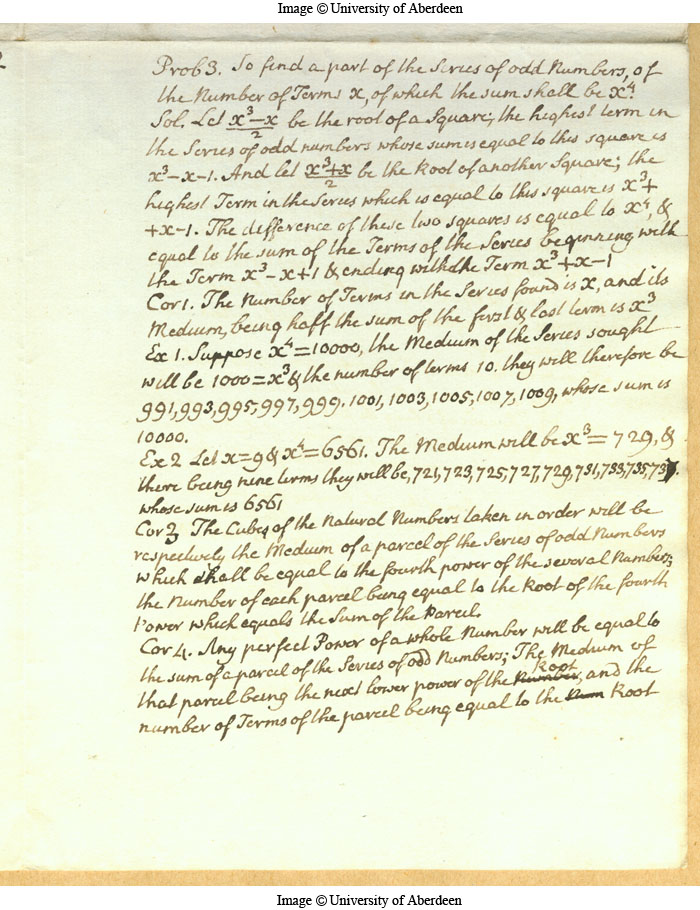 Image © University of Aberdeen
2
Prob 3. To find a part of the Series of odd Numbers, of
the Number of Terms x, of which the sum shall be x⁴.
Sol. Let x³−x/2 be the root of a Square; the highest term in
the Series of odd numbers whose sum is equal to this square is
x³−x−1. And let x³+x/2 be the Root of another Square; the
highest Term in the Series which is equal to this square is x³+
+x−1. The difference of these two squares is equal to x⁴, &
equal to the sum of the Terms of the Series beginning with
the Term x³−x+1 & ending with the Term x³+x−1
Cor 1. The Number of Terms in the Series found is x, and its
Medium, being half the sum of the first & last term is x³
Ex 1. Suppose x⁴=10000, the Medium of the Series sought
will be 1000=x³ & the number of terms 10. they will therefore be
991,993,995,997,999.1001,1003,1005,1007,1009, whose sum is
10000.
Ex 2 Let x=9 & x⁴=6561. The Medium will be x³=729, &
there being nine terms they will be, 721,723,725,727,729,731,733,735,737.
whose sum is 6561
Cor 3 The Cubes of the Natural Numbers taken in order will be
respectively the Medium of a parcel of the Series of odd Numbers
which shall be equal to the fourth power of the several Numbers;
the Number of each parcel being equal to the Root of the fourth
Power which equals the Sum of the Parcel.
Cor 4. Any perfect Power of a whole Number will be equal to
the sum of a parcel of the Series of odd Numbers; The Medium of
that parcel being the next lower power of the Number Root, and the
number of Terms of the parcel being equal to the Num Root
Image © University of Aberdeen